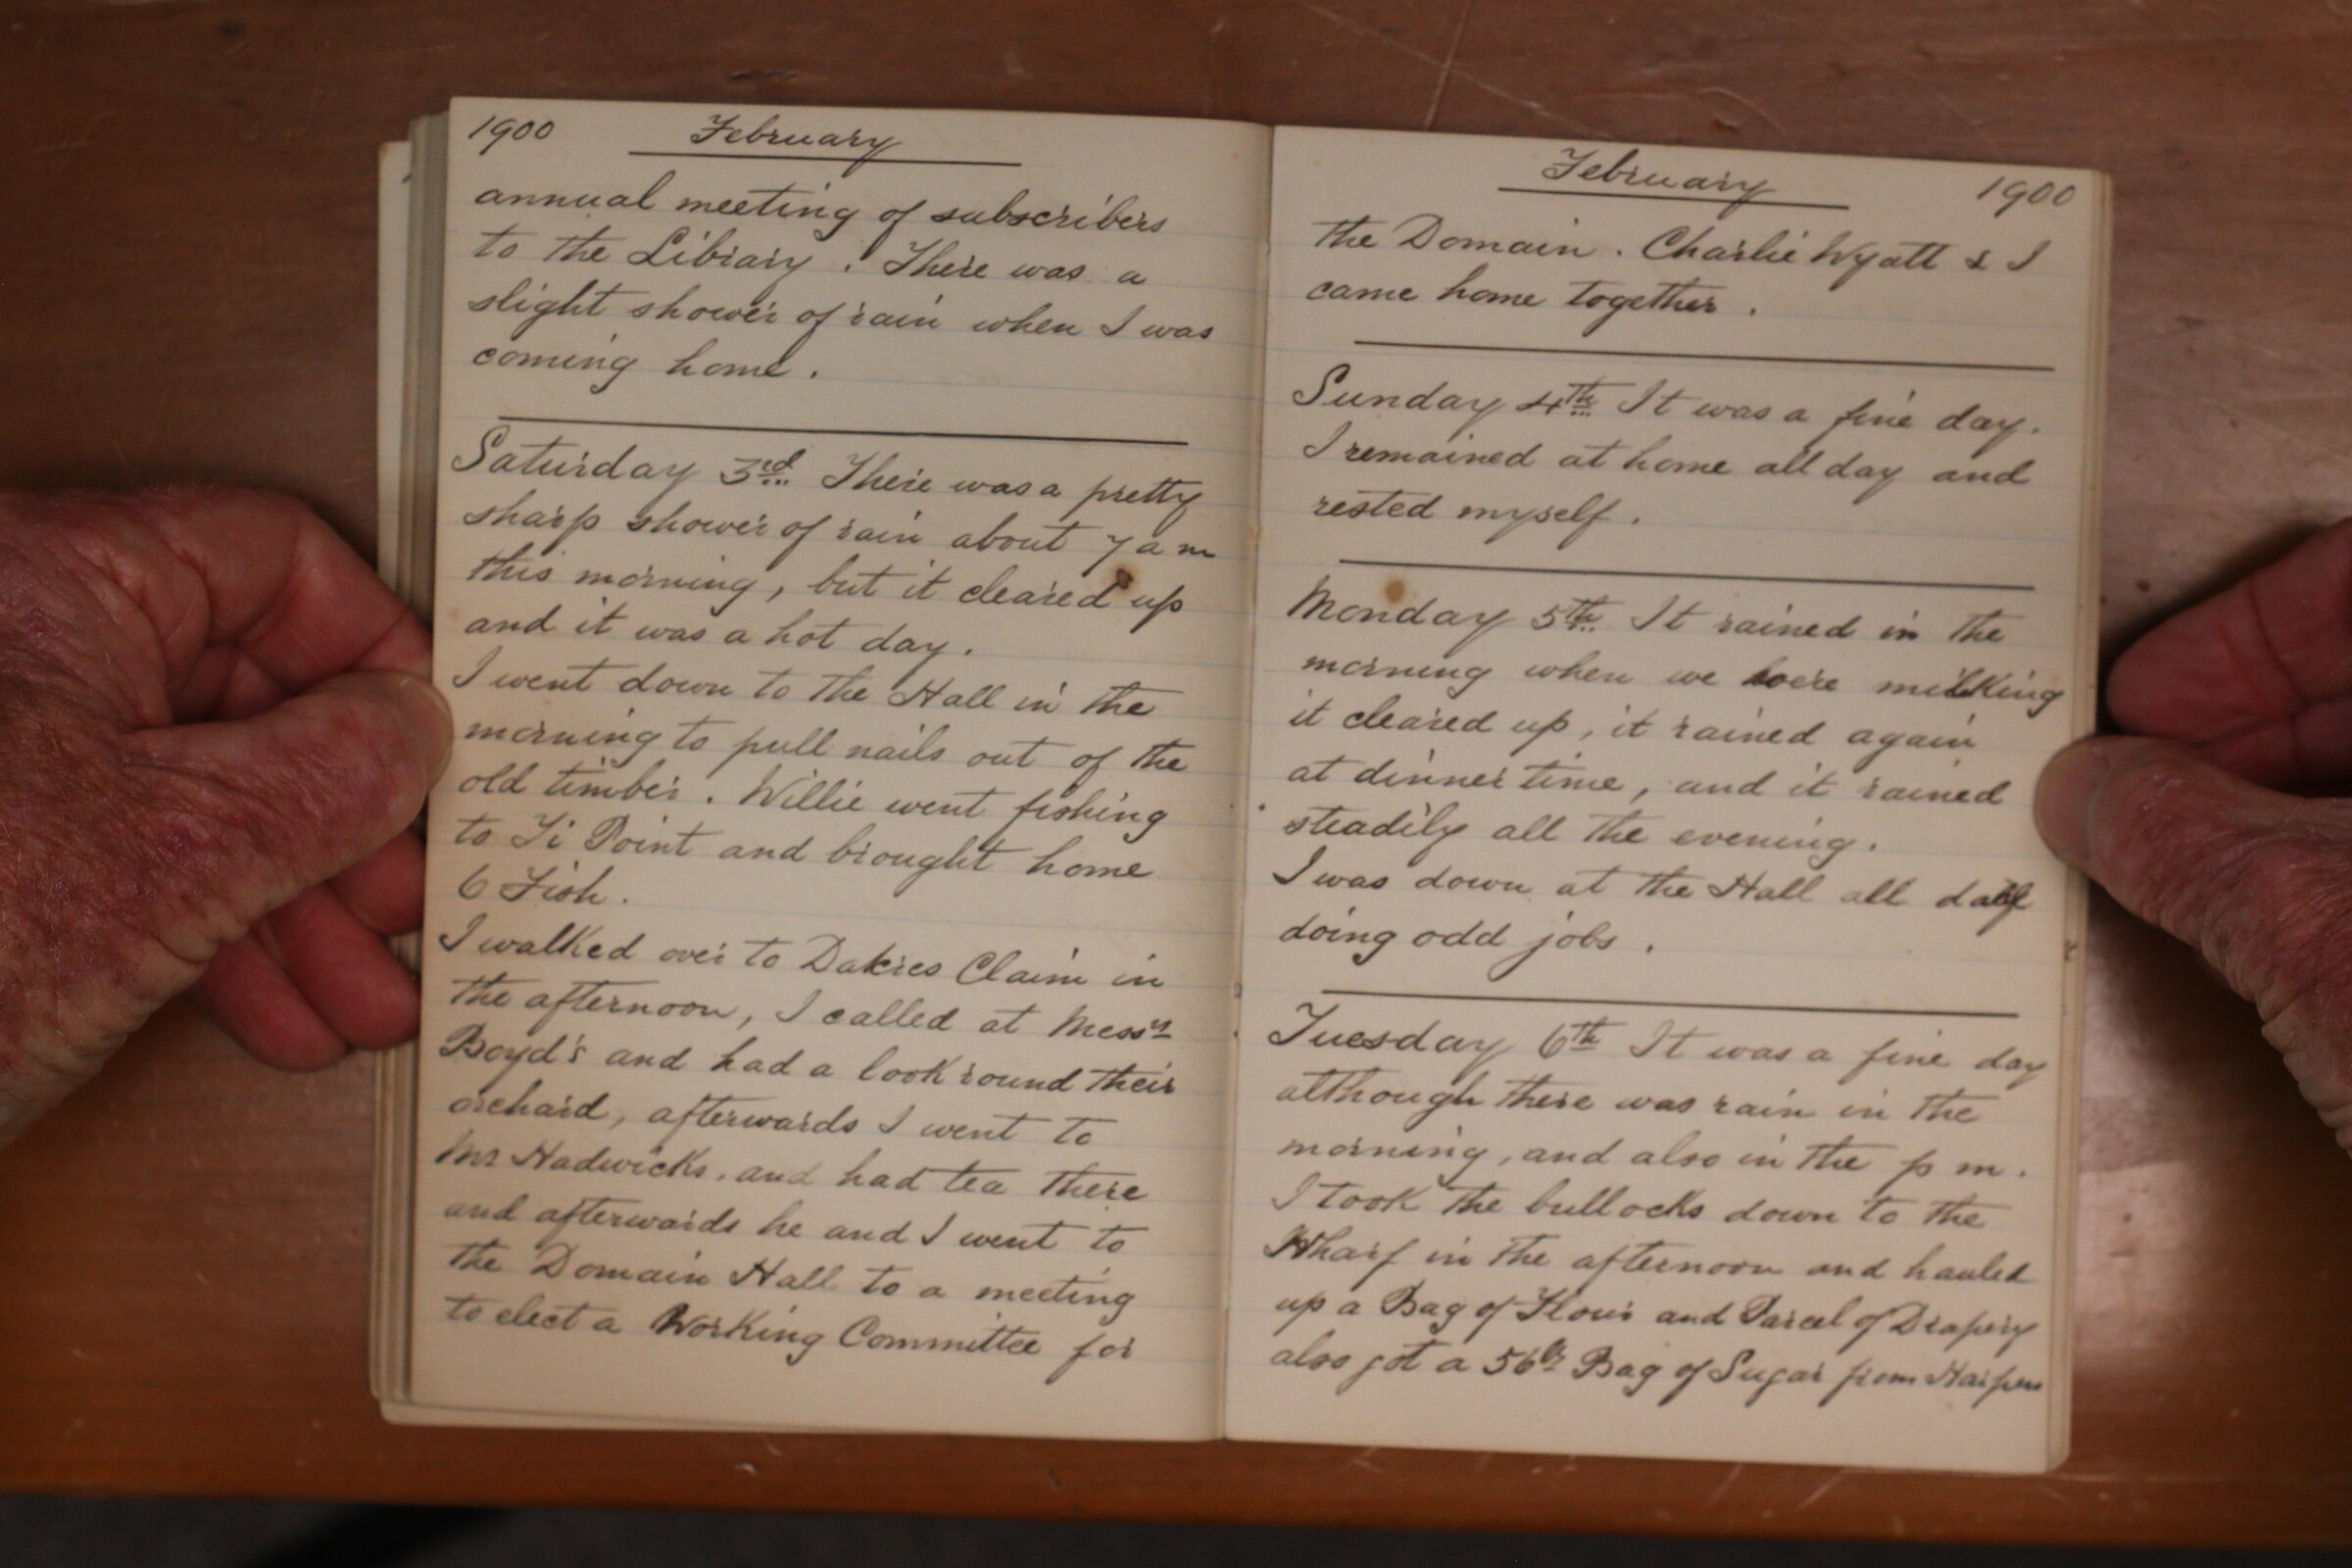 1900 February
annual meeting of subscribers
to the Library. There was a
slight shower of rain when I was
coming home.
Saturday 3rd There was a pretty
sharp shower of rain about 7 a m
this morning, but it cleared up
and it was a hot day.
I went down to the Hall in the
morning to pull nails out of the
old timber. Willie went fishing
to Ti Point and brought home
6 Fish.
I walked over to Dakres Claim in
the afternoon, I called at Messrs
Boyd's and had a look round their
orchard, afterwards I went to
Mr Hadwicks, and had tea there
and afterwards he and I went to
the Domain Hall to a meeting
to elect a Working Committee for
February 1900
the Domain. Charlie Wyatt & I
came home together.
Sunday 4th It was a fine day.
I remained at home all day and
rested myself.
Monday 5th It rained in the
morning when we were milking
it cleared up, it rained again
at dinner time, and it rained
steadily all the evening.
I was down at the Hall all day
doing odd jobs.
Tuesday 6th It was a fine day
although there was rain in the
morning, and also in the p m.
I took the bullocks down to the
Wharf in the afternoon and hauled
up a Bag of Flour and Parcel of Drapery
also got a 56lb Bag of Sugar from